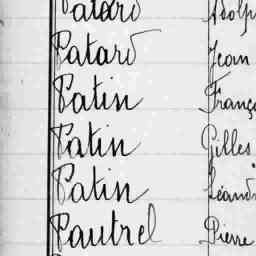 Patard Adolp
Patard Jean
Patin Franço
Patin Gilles
Patin Léandr
Pautrel Pierre